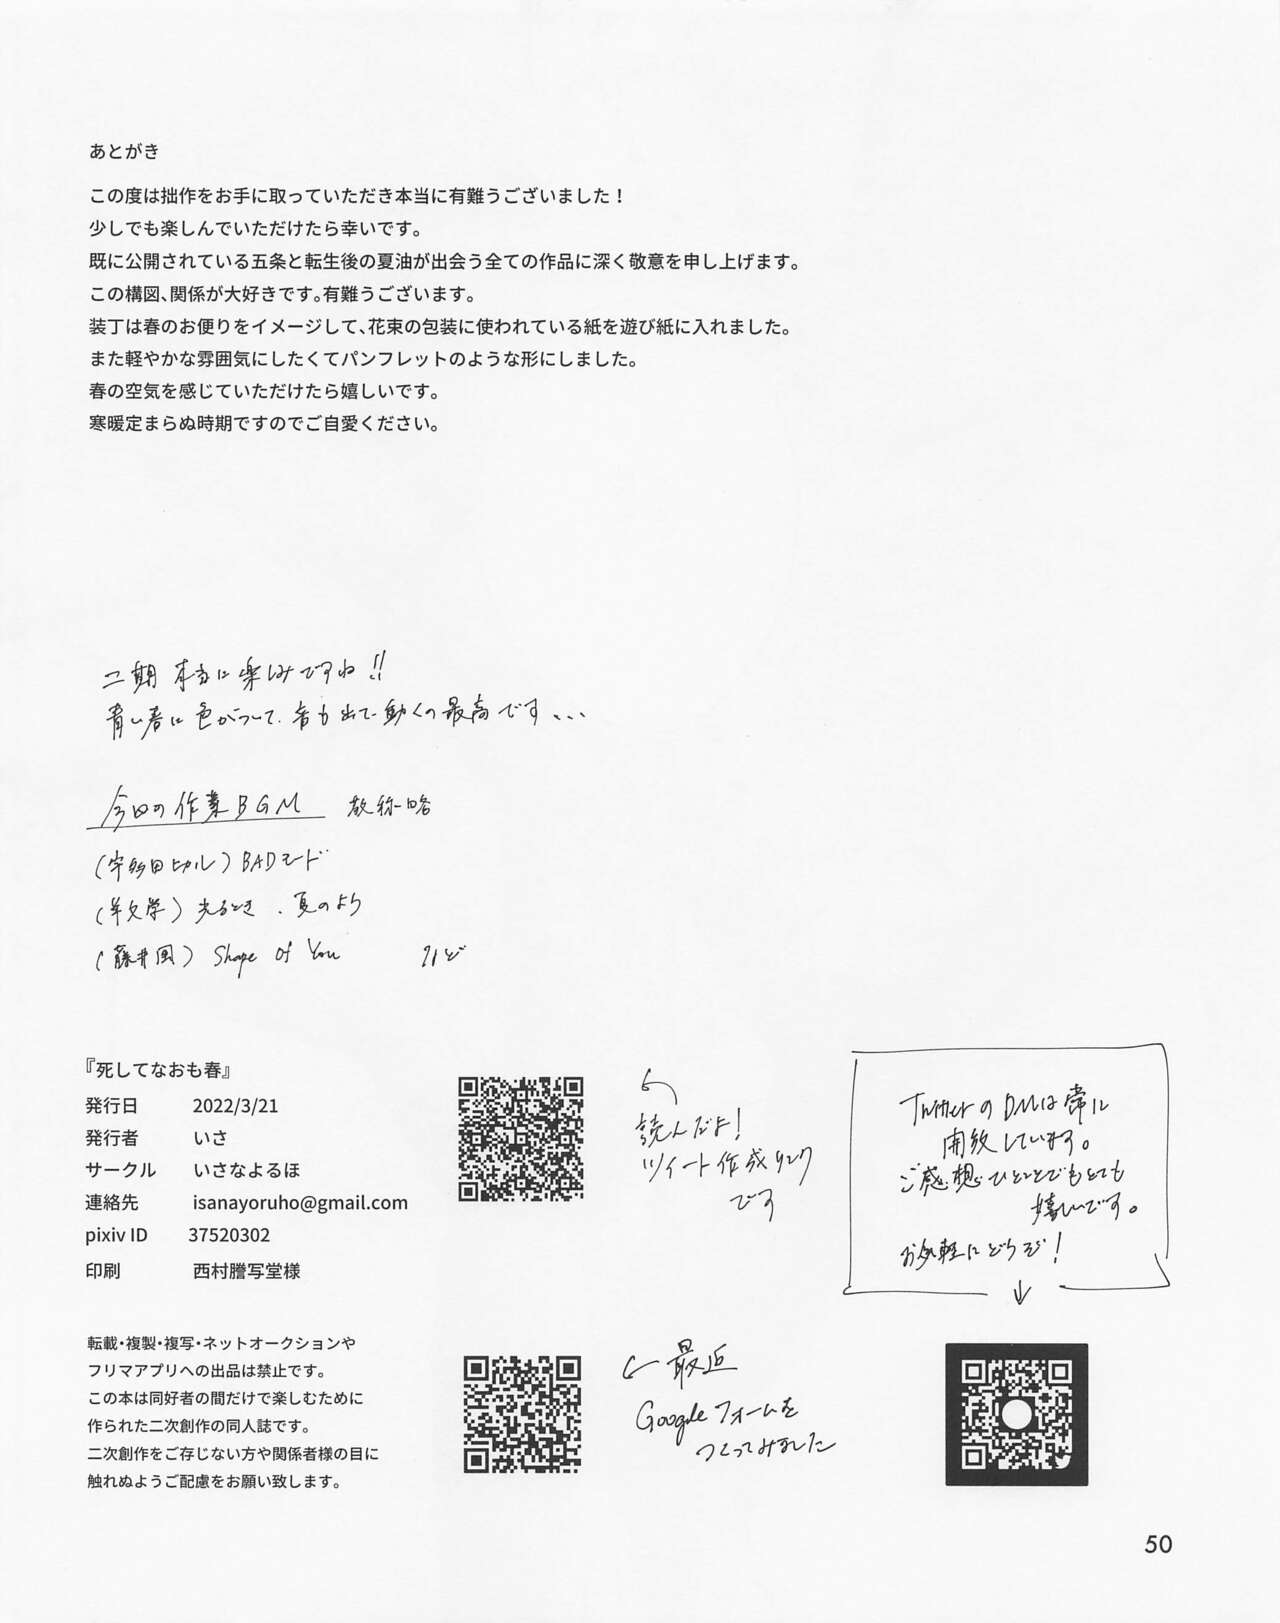 あとがき
この度は拙作をお手に取っていただき本当に有難うございました！
少しでも楽しんでいただけたら幸いです。
既に公開されている五条と転生後の夏油が出会う全ての作品に深く敬意を申し上げます。
この構図、関係が大好きです。有難うございます。
装丁は春のお便りをイメージして、花束の包装に使われている紙を遊び紙に入れました。
また軽やかな雰囲気にしたくてパンフレットのような形にしました。
春の空気を感じていただけたら嬉しいです。
寒暖定まらぬ時期ですのでご自愛ください。
二期 本当に楽しみですね!!
青い春に色がついて、音も出て動くの最高です...
今回の作業BGM 敬称略
(宇多田ヒカル) BADモード
(羊文学) 光るとき、夏のよう
(藤井風) Shape of You など
『死してなおも春』
発行日 2022/3/21
発行者 いさ
サークル いさなよるほ
連絡先 isanayoruho@gmail.com
pixiv ID 37520302
印刷 西村謄写堂様
読んだよ!
ツイート作成リンク
です
TwitterのDMは常に
開放しています。
ご感想ひとことでもとても
嬉しいです。
お気軽にどうぞ!
転載・複製・複写・ネットオークションや
フリマアプリへの出品は禁止です。
この本は同好者の間だけで楽しむために
作られた二次創作の同人誌です。
二次創作をご存じない方や関係者様の目に
触れぬようご配慮をお願い致します。
最近
Googleフォームを
つくってみました
50